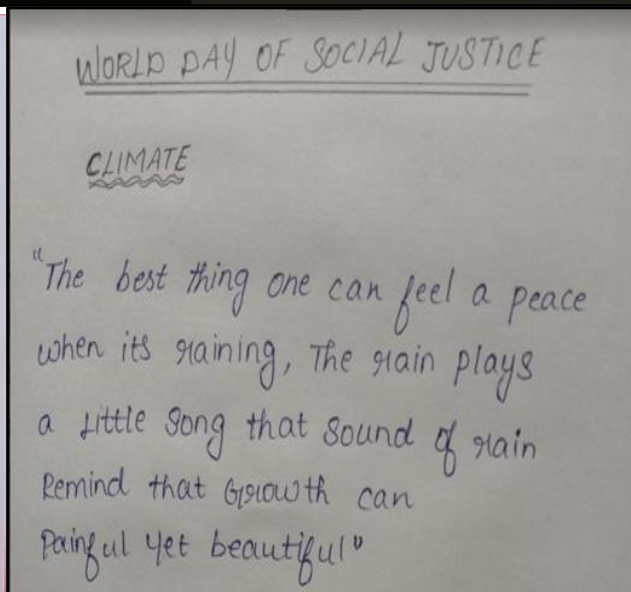 WORLD DAY OF SOCIAL JUSTICE
CLIMATE
"The best thing one can feel a peace
when its raining, The rain plays
a Little Song that Sound of rain
Remind that Growth can
Painful Yet beautiful"